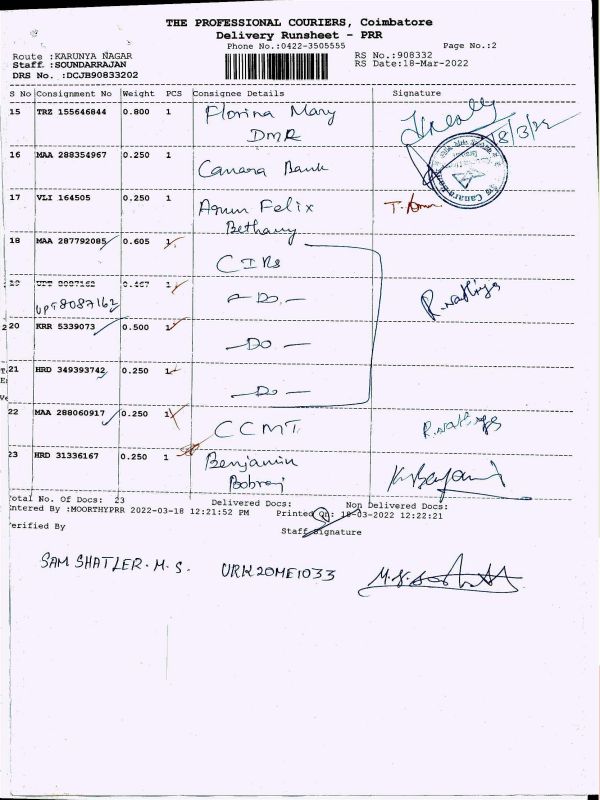 THE PROFESSIONAL COURIERS, Coimbatore
Delivery Runsheet - PRR
Phone No.:0422-3505555 Page No.:2
Route :KARUNYA NAGAR RS No.:908332
Staff :SOUNDARRAJAN RS Date:18-Mar-2022
DRS No. :DCJB90833202
S No Consignment No Weight PCS Consignee Details Signature
15 TRZ 155646844 0.800 1 Florina Mary
DMR
18/3/22
16 MAA 288354967 0.250 1 Canara Bank
17 VLI 164505 0.250 1 Arun Felix
Bethany
18 MAA 287792085 0.605 1 CIRs
19 UPT 8087162 0.467 1
UPT 8087162 - Do. -
20 KRR 5339073 0.500 1 - Do -
21 HRD 349393742 0.250 1 - Do -
22 MAA 288060917 0.250 1 CCMT
23 HRD 31336167 0.250 1 Benjamin
Bobraj
Total No. Of Docs: 23 Delivered Docs: Non Delivered Docs:
Entered By :MOORTHYPRR 2022-03-18 12:21:52 PM Printed On: 18-03-2022 12:22:21
Verified By Staff Signature
SAM SHATLER. M. S. URK20ME1033